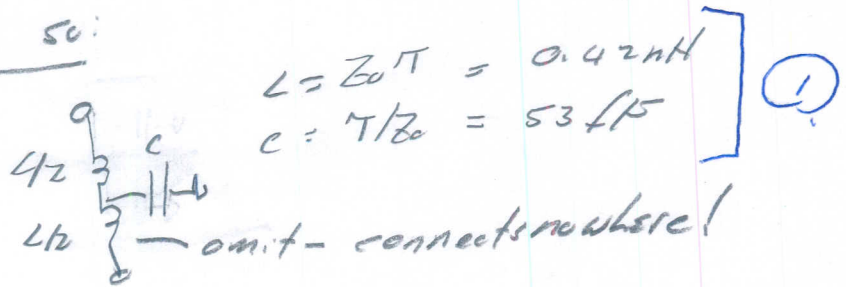 so:
L = Z₀T = 0.42nH
C = T/Z₀ = 53 fF
1
C
L/2
L/2
omit - connects nowhere!